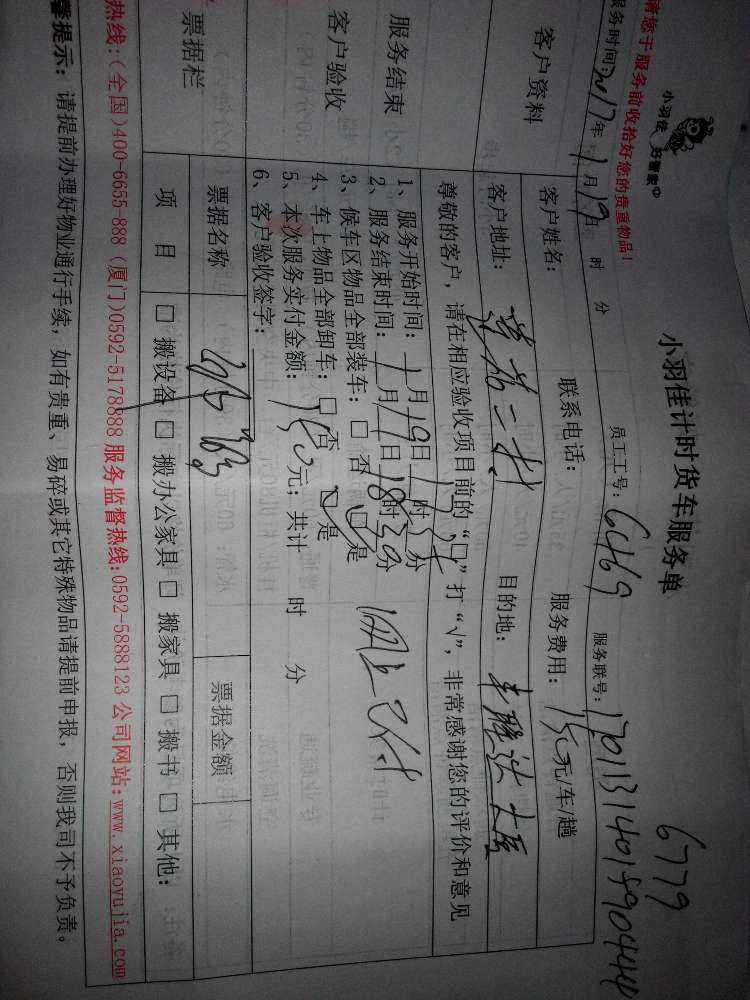 小羽佳 好管家
请您于服务前收拾好您的贵重物品！
小羽佳计时货车服务单
6779
服务时间：2017年1月19日 时 分 员工工号：6469 服务联号：
客户资料
客户姓名： 联系电话： 服务费用： 元/车/趟
客户地址： 目的地：
尊敬的客户，请在相应验收项目前的“□”打“√”，非常感谢您的评价和意见
服务结束
客户验收
1、服务开始时间：1月19日 时 分
2、服务结束时间：1月19日18时30分
3、候车区物品全部装车：□ 否 □ 是
4、车上物品全部卸车：□ 否 □ 是
5、本次服务实付金额： 元；共计 时 分
6、客户验收签字：
票据栏
票据名称 票据金额
项 目 □ 搬设备 □ 搬办公家具 □ 搬家具 □ 搬书 □ 其他：
热线：(全国)400-6655-888 (厦门)0592-5178888 服务监督热线:0592-5888123 公司网站:www.xiaoyujia.com
馨提示：请提前办理好物业通行手续，如有贵重、易碎或其它特殊物品请提前申报，否则我司不予负责。